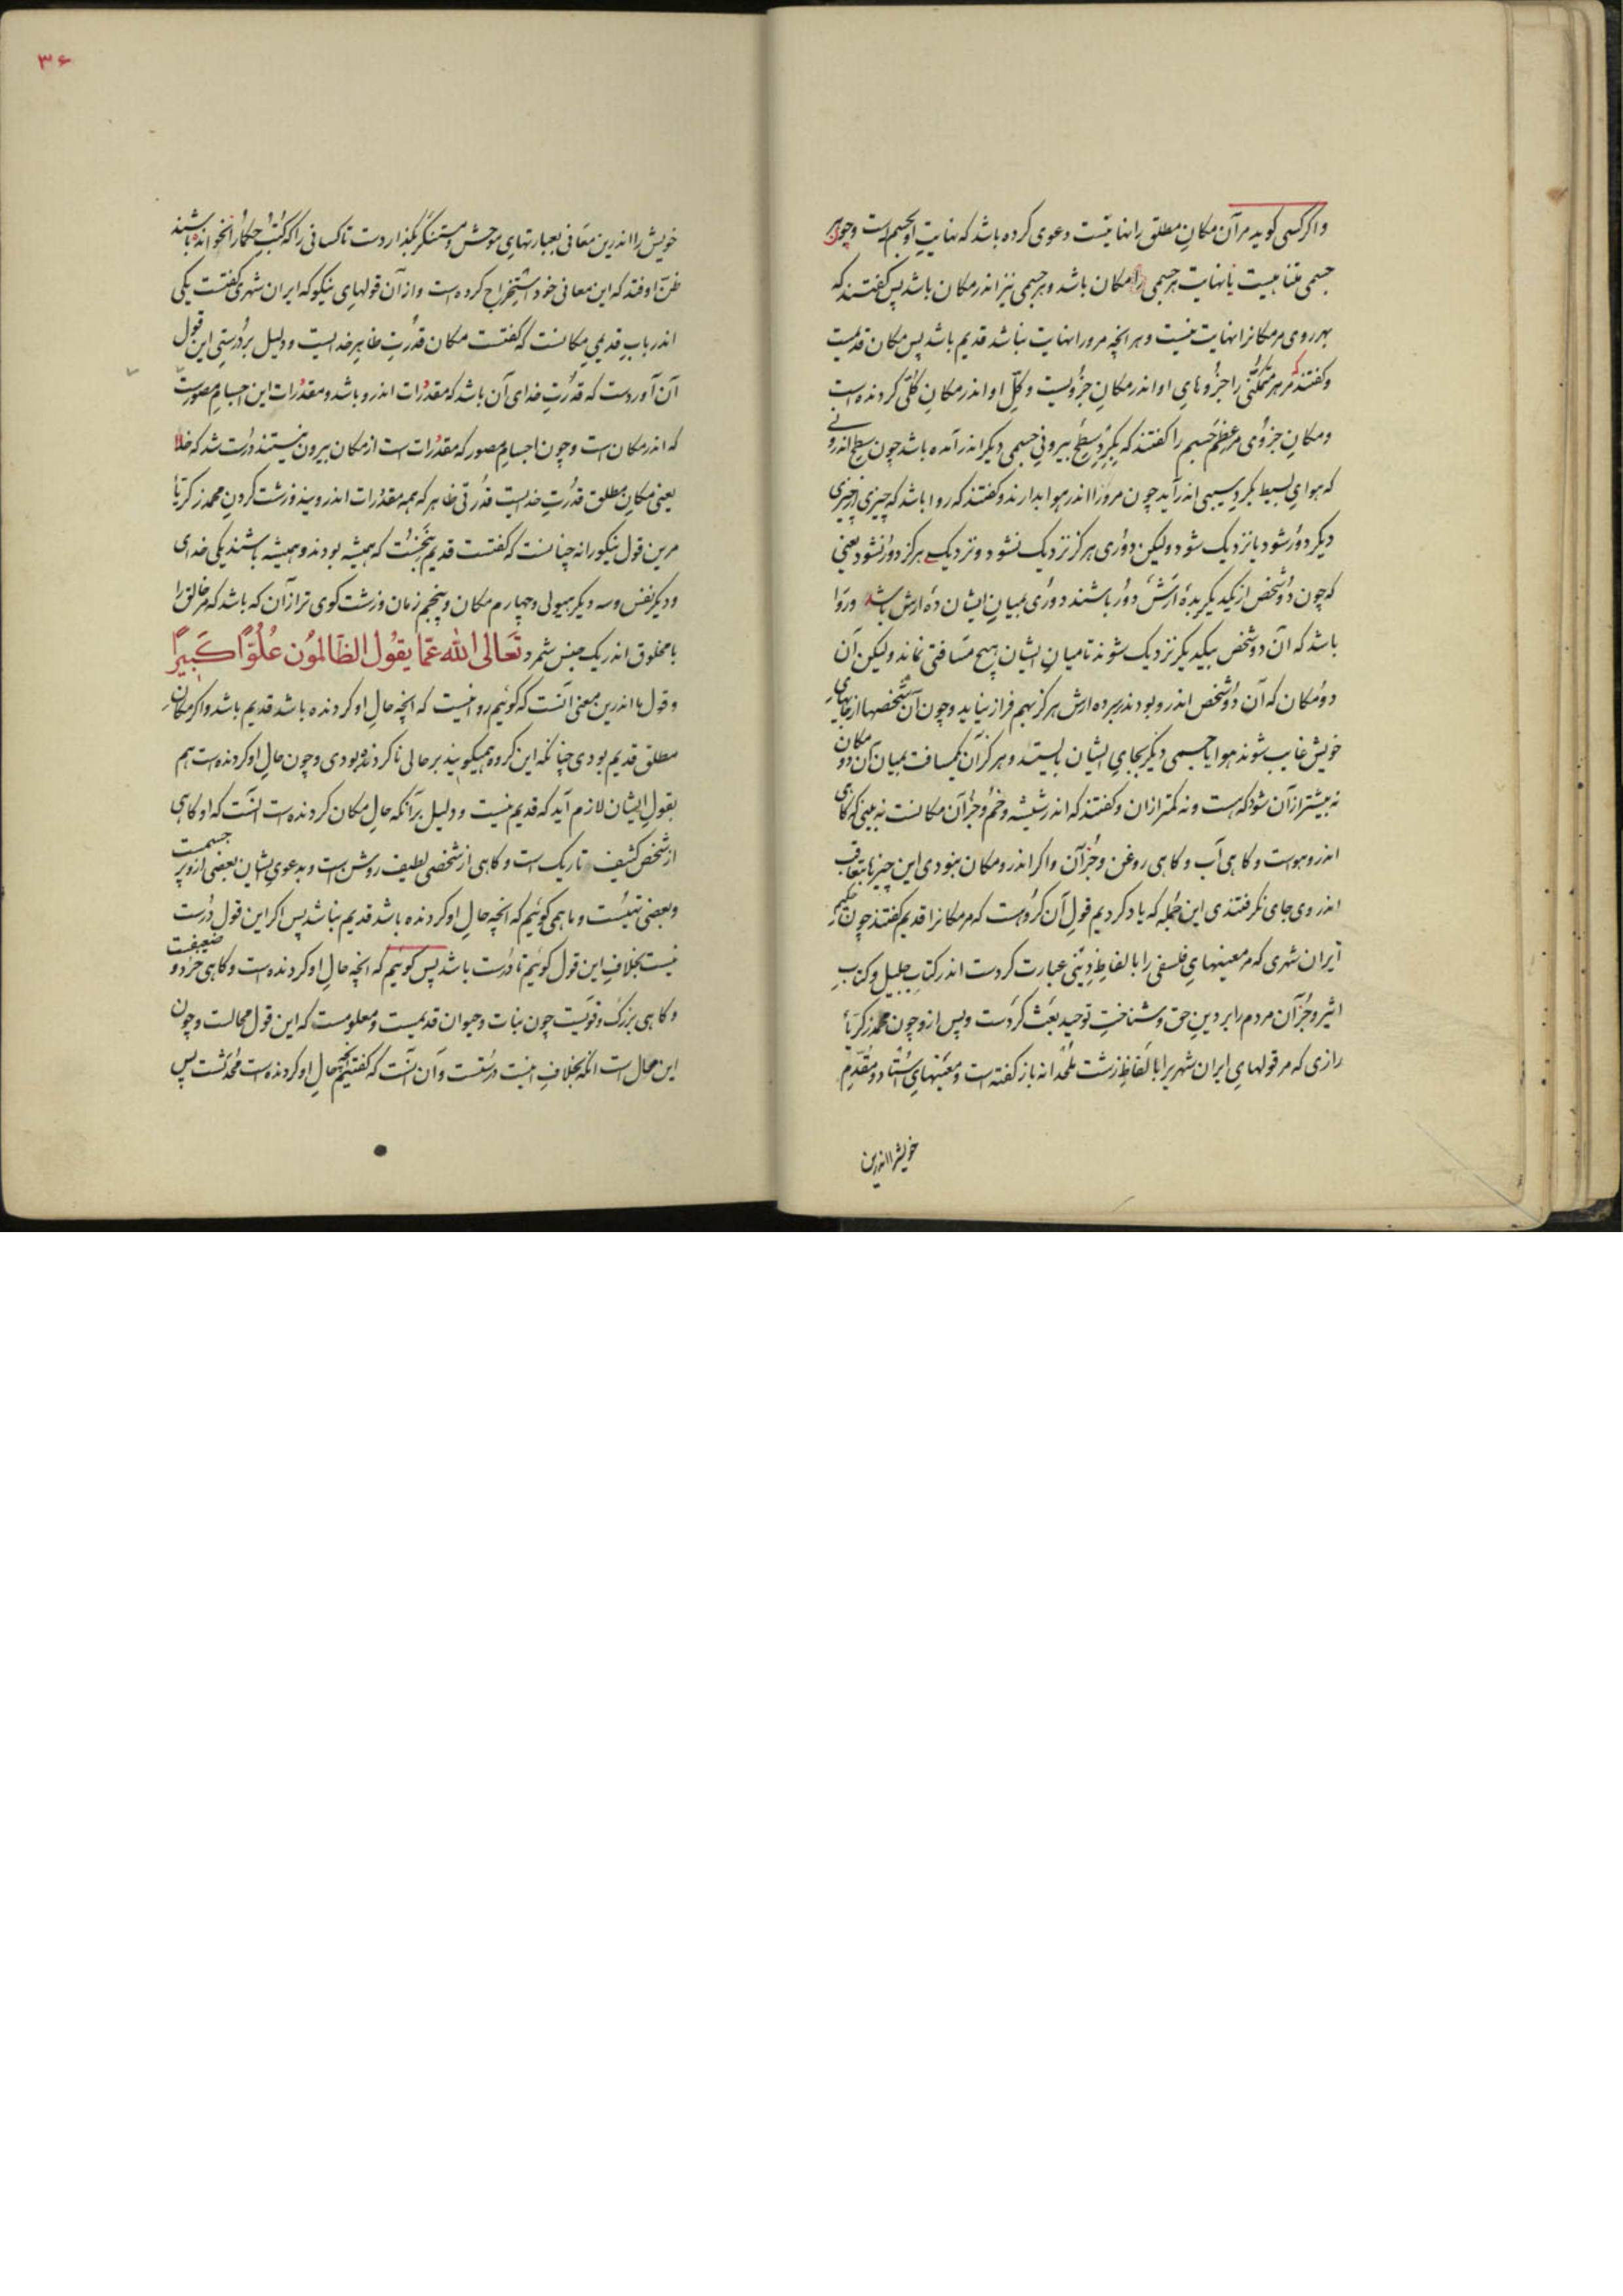 واگر کسی گوید مر آن مکان مطلق را نهایتست دعوی کرده باشد که نهایتِ او بجسم است و چون هر
جسمی متناهیست نهایت هر جسمی را مکان باشد و هر جسمی نیز اندر مکان باشد پس گفتند که
بهر روی مر مکانرا نهایت نیست و هر انچه مرورا نهایت نباشد قدیم باشد پس مکان قدیمست
و گفتند که مر هر متمکنی را جزؤهای او اندر مکانِ جزویست و کلِّ او اندر مکانِ کلّی گردنده است
و مکانِ جزوی مر عِظَمِ جسم را گفتند که بگردِ سطحِ بیرونیِ جسمی دیگر اندر آمده باشد چون سطحِ اندرونی
که هوای بسیط بگردِ سیبی اندر آید چون مرورا اندر هوا بدارند و گفتند که روا باشد که چیزی از چیزی
دیگر دور شود یا نزدیک شود ولیکن دوری هرگز نزدیک نشود و نزدیکی هرگز دور نشود یعنی
که چون دو شخص از یکدیگر بدهٔ ارش دور باشند دوری میانِ ایشان ده ارش باشد و روا
باشد که آن دو شخص بیکدیگر نزدیک شوند تا میانِ ایشان هیچ مسافتی نماند ولیکن آن
دو مکان که آن دو شخص اندرو بودند بر ده ارش هرگز بهم فراز نیاید و چون آن شخصها از جایهای
خویش غایب شوند هوا یا جسمی دیگر بجای ایشان بایستد و هرگز آن مسافت میان آن دو مکان
نه بیشتر از آن شود که هست و نه کمتر از آن و گفتند که اندر شیشه و خم و جز آن مکانست نه بینی که گاهی
اندرو هواست و گاهی آب و گاهی روغن و جز آن و اگر اندرو مکان نبودی این چیزها بتعاقب
اندروی جای نگرفتندی این جمله که یاد کردیم قولِ آن گروهست که مر مکانرا قدیم گفتند چون حکیم
ایران شهری که مر معنیهای فلسفی را بالفاظِ دینی عبارت کردست اندر کتابِ جلیل و کتابِ
اثیر و جز آن مردم را بر دینِ حق و شناختِ توحید بعث کردست و پس ازو چون محمد زکریاءِ
رازی که مر قولهای ایران شهری را بالفاظِ زشت ملحدانه باز گفته است و معنیهای استاد و مقدّمِ
خویش را اندرین
۳۶
خویش را اندرین معانی بعبارتهای موحش و مستنکر بگذاردست تا کسانی را که کتبِ حکما را نخوانده باشند
ظنّ اوفتد که این معانی خود استخراج کرده است و از آن قولهای نیکو که ایران شهری گفتست یکی
اندر بابِ قدیمیِ مکانست که گفتست مکان قدرتِ ظاهرِ خدایست و دلیل بر درستیِ این قول
آن آوردست که قدرتِ خدای آن باشد که مقدُرات اندرو باشد و مقدُرات این اجسامِ مصورست
که اندر مکان است و چون اجسامِ مصور که مقدُرات است از مکان بیرون نیستند درست شد که خلا
یعنی مکان مطلق قدرتِ خدایست قدرتی ظاهر که همه مقدُرات اندروینذ و زشت کردنِ محمد زکریا
مرین قول نیکو را نه چنانست که گفتست قدیم پنجست که همیشه بودند و همیشه باشند یکی خدای
و دیگر نفس و سه دیگر هیولی و چهارم مکان و پنجم زمان و زشت گوی تر از آن که باشد که مر خالق را
با مخلوق اندر یک جنس شمرد تَعَالی الله عَمّا یَقُولُ الظَالمُون عُلُوّاً کَبیراً
و قول ما اندرین معنی آنست که گوئیم روا نیست که انچه حالِ او گردنده باشد قدیم باشد و اگر مکانِ
مطلق قدیم بودی چنانکه این گروه همیگویند بر حالی ناگردنده بودی و چون حالِ او گردنده است هم
بقولِ ایشان لازم آید که قدیم نیست و دلیل بر آنکه حالِ مکان گردنده است آنست که او گاهی
از شخصِ کثیف تاریک است و گاهی از شخصی لطیف روشن است و بدعویِ ایشان بعضی ازو پر جسمست
و بعضی تهیست و ما همی گوئیم که انچه حالِ او گردنده باشد قدیم نباشد پس اگر این قول درست
نیست بخلافِ این قول گوئیم تا درست باشد پس گوئیم که انچه حالِ او گردنده است و گاهی خرد و ضعیفست
و گاهی بزرگ و قویست چون نبات و حیوان قدیمست و معلومست که این قول محالست و چون
این محال است انکه بخلافِ اینست درستست و آن آنست که گفتیم انچه حالِ او گردنده است محدثست پس